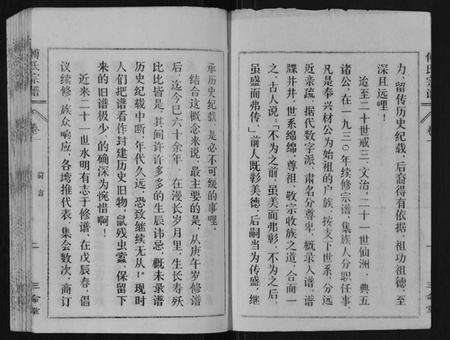 傅氏宗谱
卷
力，留传历史纪载，后裔得有依据，祖功祖德，至
深且远哩！
迨至二十世戒三、文治，二十一世仙洲、典五
诸公，在一九三〇年续修宗谱，集族人分职任事，
凡是奉兴材公为始祖的户族，按支下世系，分远
近亲疏，据代数字派，肃名分尊卑，概录入谱，谱
牒井井，世系绵绵，尊祖、敬宗收族之道，合而一
之。古人说：“不为之前，虽美而弗彰，不为之后，
虽盛而弗传。”前人既彰美德，后嗣当为传盛，继
承历史纪载，是必不可缓的事哩。
结合这概念来说，最主要的是，从庚午岁修谱
后，迄今已六十余年，在漫长岁月里，生长寿殁，
比比皆是，其间许许多多的生辰讳忌，概未录谱，
历史纪载中断，年代久远，恐致继续无从！现时
人们把谱看作封建历史旧物，鼠残虫蠹，保留下
来的旧谱极少，的确深为惋惜！
近来二十一世永明有志于修谱，在戊辰春，倡
议续修，族众响应，各塆推代表，集会数次，商订
傅氏宗谱
卷
前言
三命堂